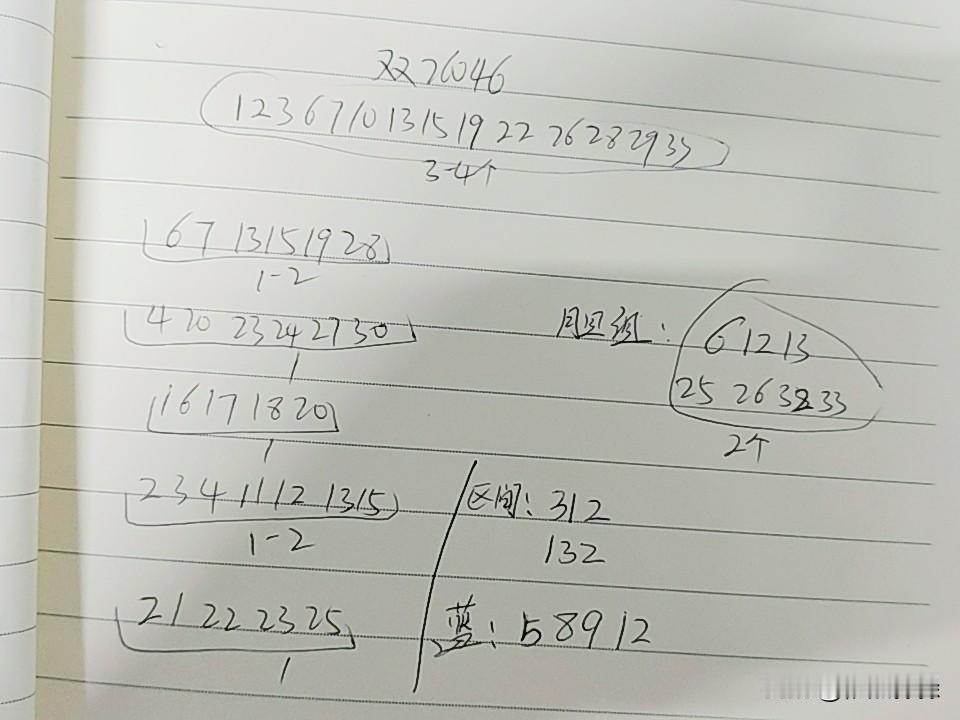 双22026046
1 2 3 6 7 10 13 15 19 22 26 28 29 33
3-4个
6 7 13 15 19 28
1-2
4 20 23 24 27 30
1
16 17 18 20
1
2 3 4 11 12 13 15
1-2
21 22 23 25
1
周四组:
6 12 13
25 26 32 33
2个
区间: 312
132
蓝: 5 8 9 12